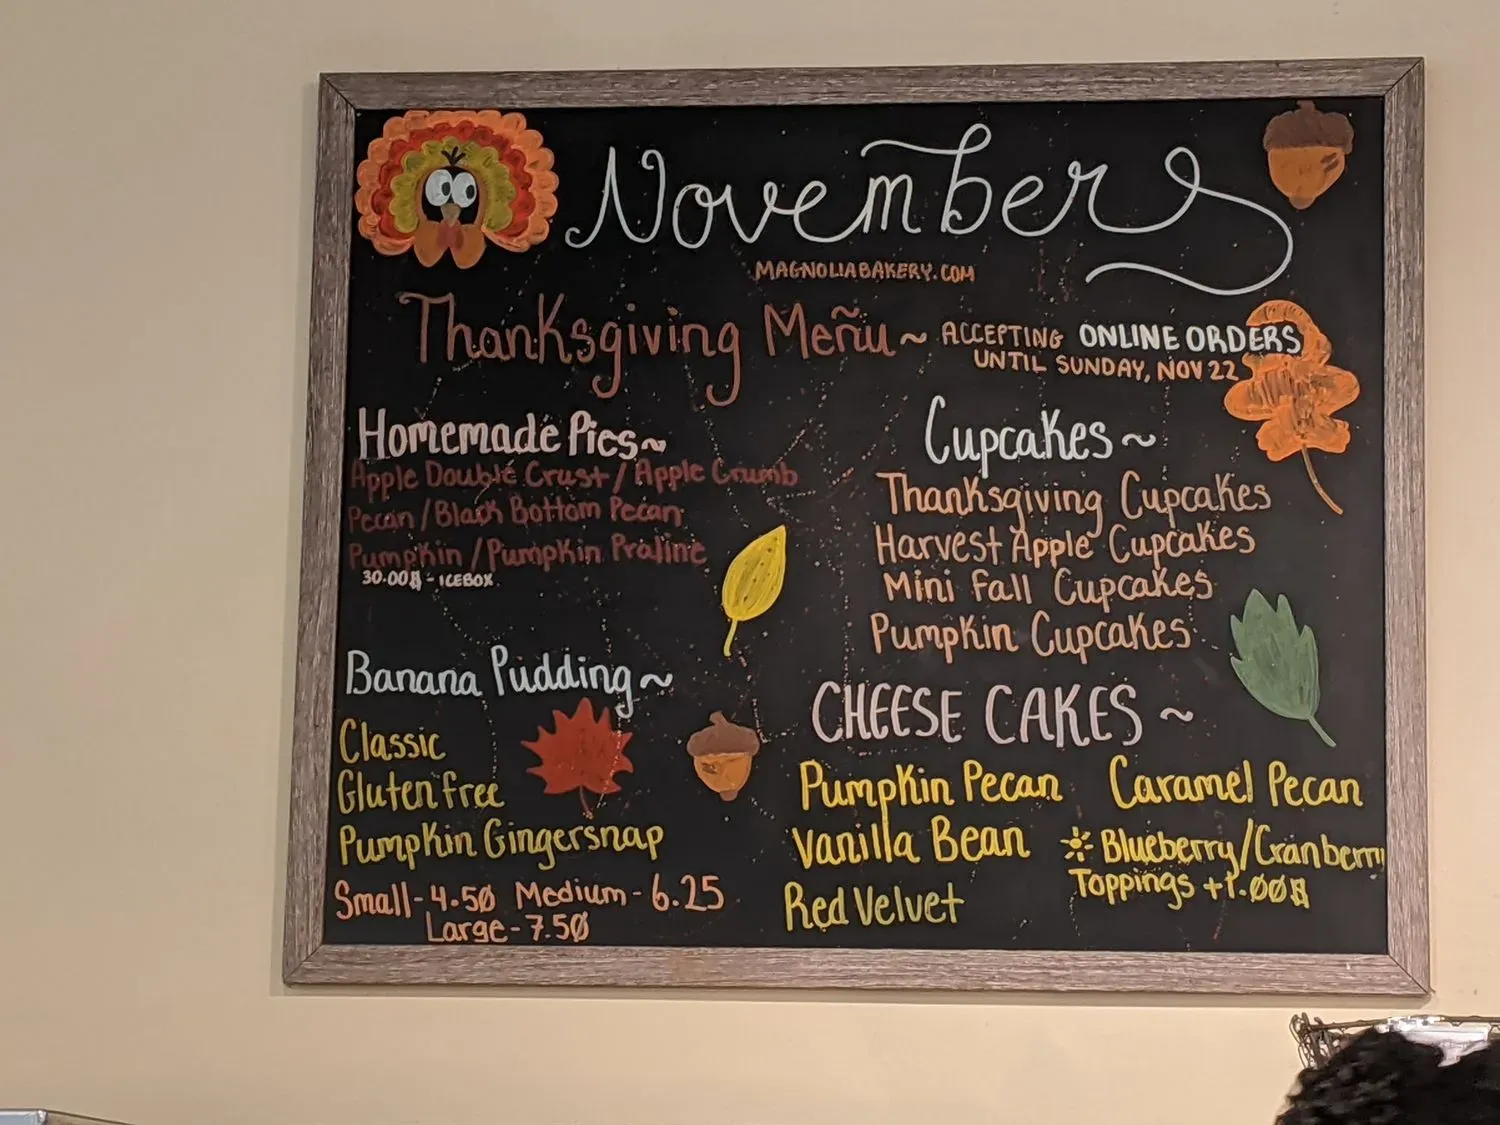 November
MAGNOLIABAKERY.COM
Thanksgiving Meñu ~ ACCEPTING ONLINE ORDERS
UNTIL SUNDAY, NOV 22
Homemade Pies~
Apple Double Crust / Apple Crumb
Pecan / Black Bottom Pecan
Pumpkin / Pumpkin Praline
30.00$ - ICEBOX
Banana Pudding~
Classic
Gluten free
Pumpkin Gingersnap
Small - 4.50 Medium - 6.25
Large - 7.50
Cupcakes ~
Thanksgiving Cupcakes
Harvest Apple Cupcakes
Mini Fall Cupcakes
Pumpkin Cupcakes
CHEESE CAKES ~
Pumpkin Pecan Caramel Pecan
Vanilla Bean
Red Velvet
Blueberry/Cranberry
Toppings +1.00$